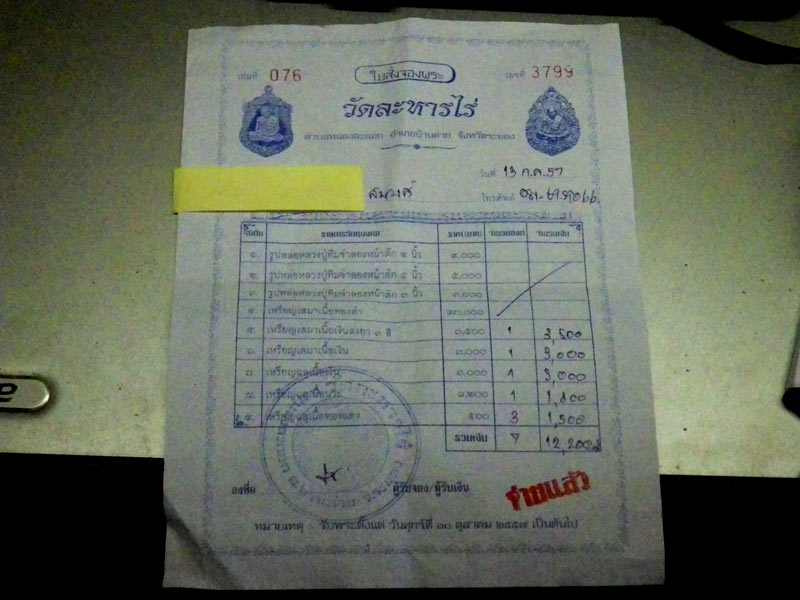 เล่มที่ 076 ใบสั่งจองพระ เลขที่ 3799
วัดละหารไร่
ตำบลหนองละลอก อำเภอบ้านค่าย จังหวัดระยอง
วันที่ 13 ก.ค. 57
สมวงศ์ โทรศัพท์
ลำดับ รายการวัตถุมงคล ราคา (บาท) จำนวนเงิน
๑. รูปหล่อหลวงปู่ทิมจำลองหน้าตัก ๙ นิ้ว ๙,๐๐๐
๒. รูปหล่อหลวงปู่ทิมจำลองหน้าตัก ๕ นิ้ว ๕,๐๐๐
๓. รูปหล่อหลวงปู่ทิมจำลองหน้าตัก ๓ นิ้ว ๓,๐๐๐
๔. เหรียญเสมาเนื้อทองคำ
๕. เหรียญเสมาเนื้อเงินลงยา ๓ สี ๓,๕๐๐ 1 3,500
๖. เหรียญเสมาเนื้อเงิน ๓,๐๐๐ 1 3,000
๗. เหรียญฉลุเนื้อเงิน ๓,๐๐๐ 1 3,000
๘. 1
๙. เหรียญฉลุเนื้อทองแดง ๕๐๐ 3 1,500
รวมเงิน 7 12,200
ลงชื่อ ผู้รับจอง/ผู้รับเงิน
จ่ายแล้ว
หมายเหตุ รับพระตั้งแต่ วันศุกร์ที่ ๑๐ ตุลาคม ๒๕๕๗ เป็นต้นไป